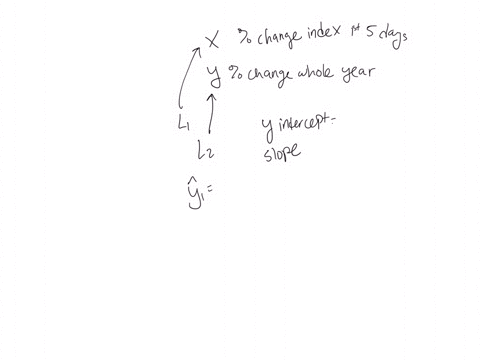 X % change index 1st 5 days
Y % change whole year
L1
y intercept=
L2
slope
ŷ1=